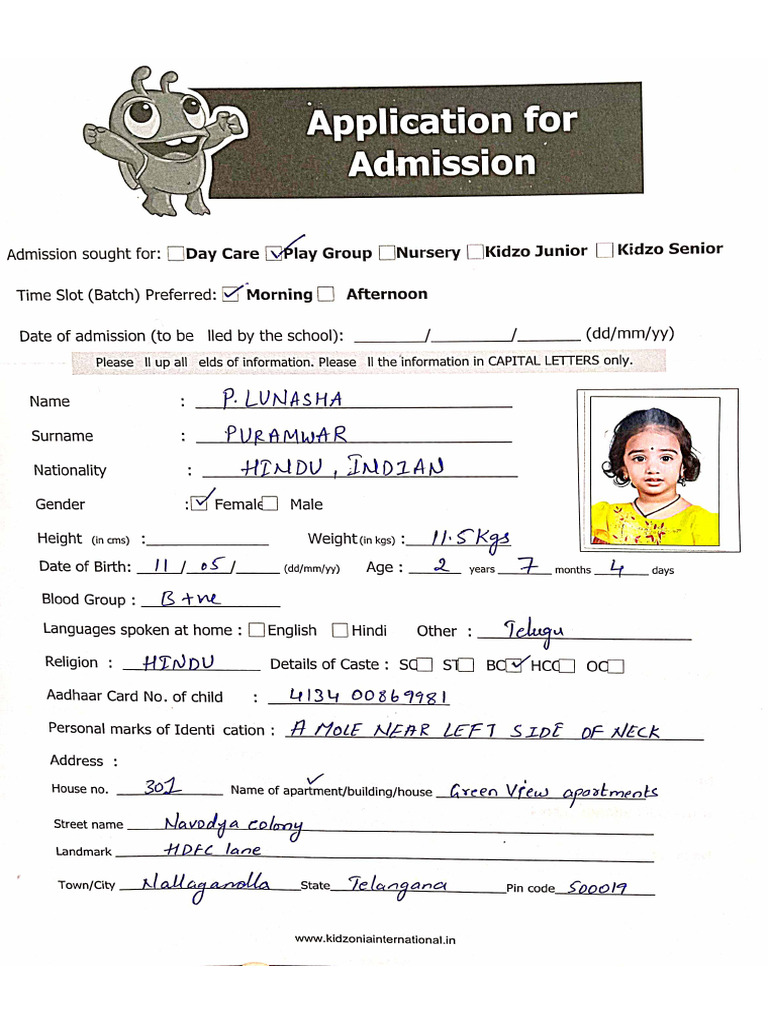 Application for
Admission
Admission sought for: Day Care Play Group Nursery Kidzo Junior Kidzo Senior
Time Slot (Batch) Preferred: Morning Afternoon
Date of admission (to be lled by the school): ________/________/________ (dd/mm/yy)
Please ll up all elds of information. Please ll the information in CAPITAL LETTERS only.
Name : P. LUNASHA
Surname : PURAMWAR
Nationality : HINDU, INDIAN
Gender : Female Male
Height (in cms) : Weight (in kgs) : 11.5 Kgs
Date of Birth: 11 / 05 / (dd/mm/yy) Age : 2 years 7 months 4 days
Blood Group : B +ve
Languages spoken at home : English Hindi Other : Telugu
Religion : HINDU Details of Caste : SC ST BC HCC OC
Aadhaar Card No. of child : 4134 00869981
Personal marks of Identi cation : A MOLE NEAR LEFT SIDE OF NECK
Address :
House no. 301 Name of apartment/building/house Green View apartments
Street name Navodya colony
Landmark HDFC lane
Town/City Nallagandla State Telangana Pin code 500019
www.kidzoniainternational.in